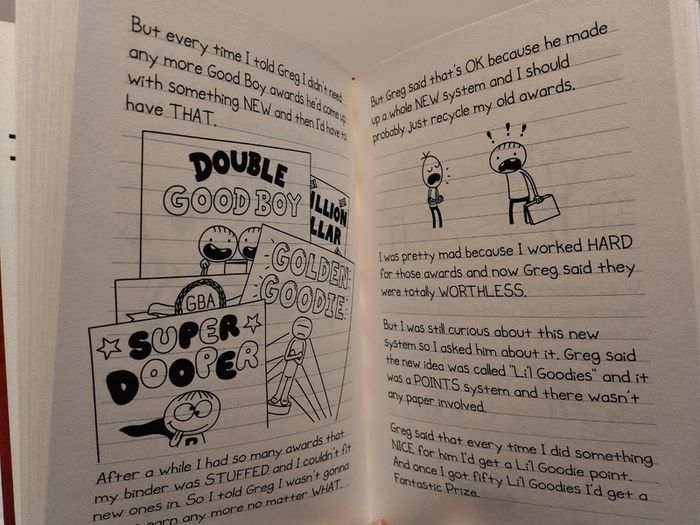 But every time I told Greg I didn't need
any more Good Boy awards he'd come up
with something NEW and then I'd have to
have THAT.
DOUBLE
GOOD BOY
ILLION
LLAR
GOLDEN
GOODIE
GBA
SUPER
DOOPER
After a while I had so many awards that
my binder was STUFFED and I couldn't fit
new ones in. So I told Greg I wasn't gonna
earn any more no matter WHAT.
But Greg said that's OK because he made
up a whole NEW system and I should
probably just recycle my old awards.
! ! !
I was pretty mad because I worked HARD
for those awards and now Greg said they
were totally WORTHLESS.
But I was still curious about this new
system so I asked him about it. Greg said
the new idea was called "Li'l Goodies" and it
was a POINTS system and there wasn't
any paper involved.
Greg said that every time I did something
NICE for him I'd get a Li'l Goodie point.
And once I got fifty Li'l Goodies I'd get a
Fantastic Prize.